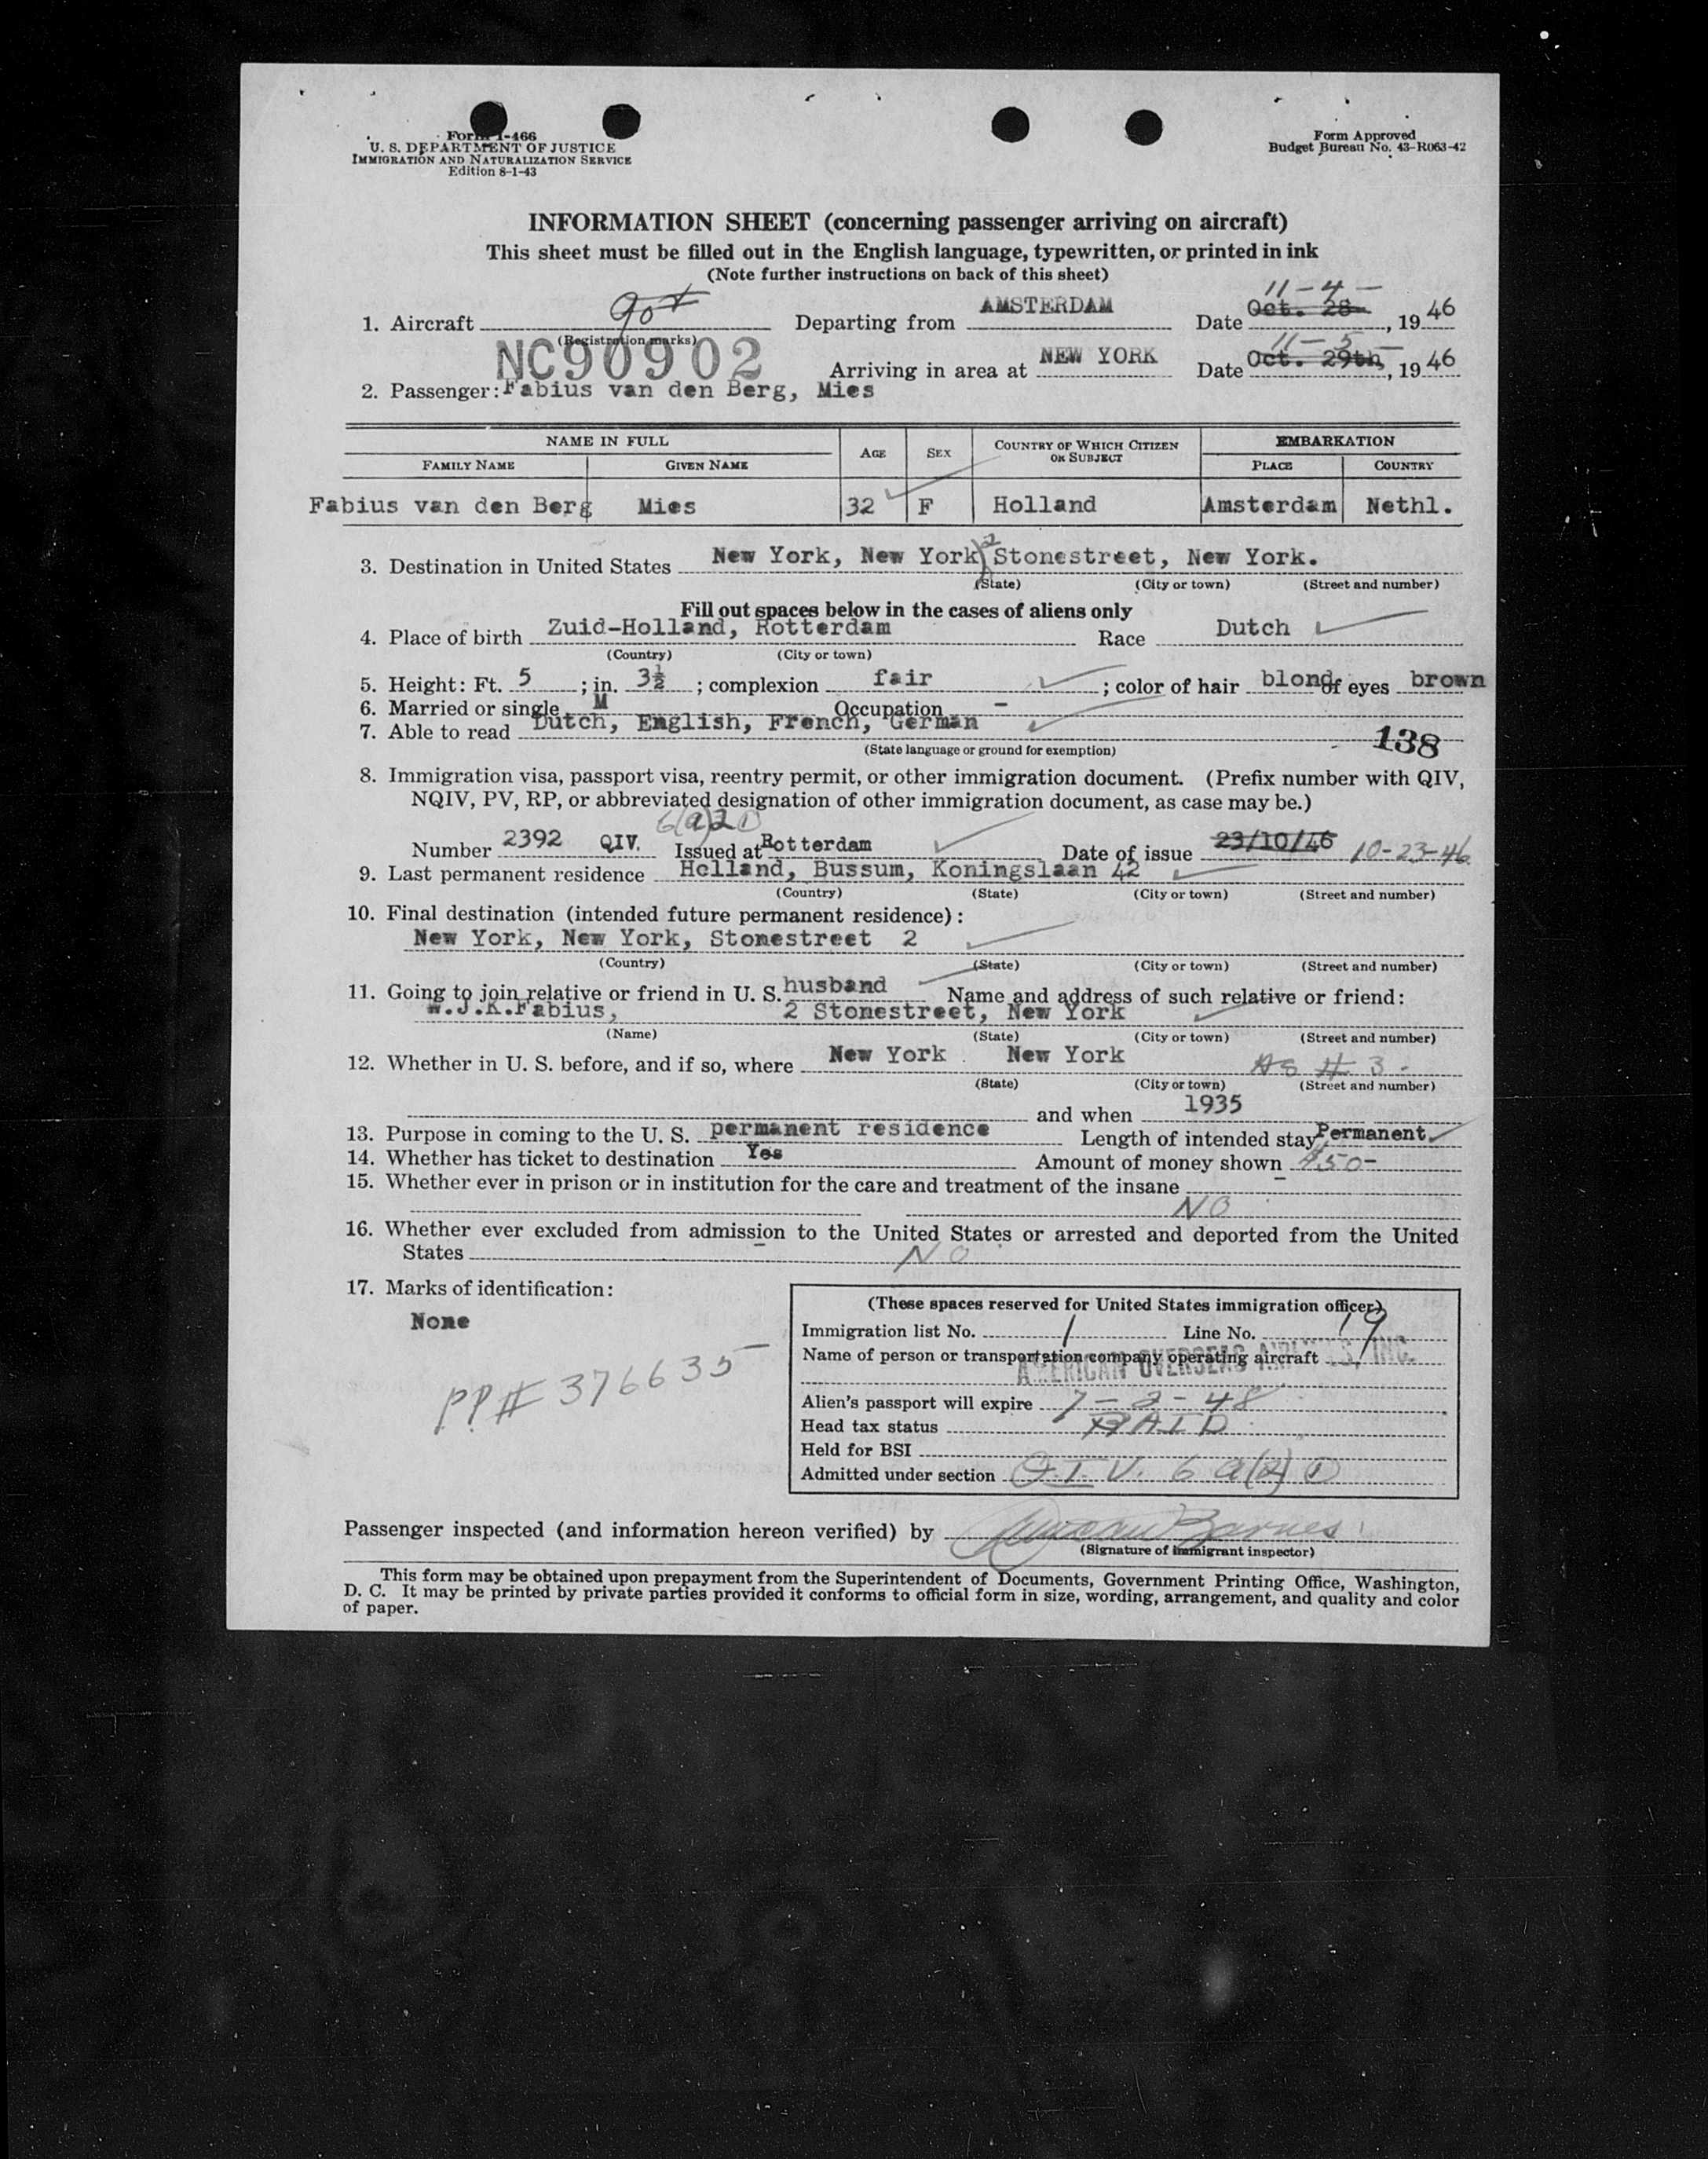 Form I-466
U. S. DEPARTMENT OF JUSTICE
IMMIGRATION AND NATURALIZATION SERVICE
Edition 8-1-43
Form Approved
Budget Bureau No. 43-R063-42
INFORMATION SHEET (concerning passenger arriving on aircraft)
This sheet must be filled out in the English language, typewritten, or printed in ink
(Note further instructions on back of this sheet)
11-4-
1. Aircraft Departing from AMSTERDAM Date Oct. 28 , 19 46
(Registration marks)
11-5-
NC90902 Arriving in area at NEW YORK Date Oct. 29th, , 19 46
2. Passenger: Fabius van den Berg, Mies
NAME IN FULL AGE SEX COUNTRY OF WHICH CITIZEN OR SUBJECT EMBARKATION
FAMILY NAME GIVEN NAME PLACE COUNTRY
Fabius van den Berg Mies 32 F Holland Amsterdam Nethl.
3. Destination in United States New York, New York 2 Stonestreet, New York.
(State) (City or town) (Street and number)
Fill out spaces below in the cases of aliens only
4. Place of birth Zuid-Holland, Rotterdam Race Dutch
(Country) (City or town)
5. Height: Ft. 5 ; in. 3½ ; complexion fair ; color of hair blond of eyes brown
6. Married or single M Occupation -
7. Able to read Dutch, English, French, German
(State language or ground for exemption)
138
8. Immigration visa, passport visa, reentry permit, or other immigration document. (Prefix number with QIV,
NQIV, PV, RP, or abbreviated designation of other immigration document, as case may be.)
6(a)2D
Number 2392 QIV. Issued at Rotterdam Date of issue 23/10/46 10-23-46
9. Last permanent residence Holland, Bussum, Koningslaan 42
(Country) (State) (City or town) (Street and number)
10. Final destination (intended future permanent residence):
New York, New York, Stonestreet 2
(Country) (State) (City or town) (Street and number)
11. Going to join relative or friend in U. S. husband Name and address of such relative or friend:
W.J.K.Fabius, 2 Stonestreet, New York
(Name) (State) (City or town) (Street and number)
12. Whether in U. S. before, and if so, where New York New York As # 3.
(State) (City or town) (Street and number)
and when 1935
13. Purpose in coming to the U. S. permanent residence Length of intended stay Permanent
14. Whether has ticket to destination Yes Amount of money shown $50-
15. Whether ever in prison or in institution for the care and treatment of the insane -
NO
16. Whether ever excluded from admission to the United States or arrested and deported from the United
States - NO
17. Marks of identification:
None
PP# 376635
(These spaces reserved for United States immigration officer)
Immigration list No. 1 Line No. 19
Name of person or transportation company operating aircraft
AMERICAN OVERSEAS AIRLINES, INC.
Alien's passport will expire 7-2-48
Head tax status PAID
Held for BSI
Admitted under section Q.I.V. 6a(2) D
Passenger inspected (and information hereon verified) by Barnes
(Signature of immigrant inspector)
This form may be obtained upon prepayment from the Superintendent of Documents, Government Printing Office, Washington,
D. C. It may be printed by private parties provided it conforms to official form in size, wording, arrangement, and quality and color
of paper.